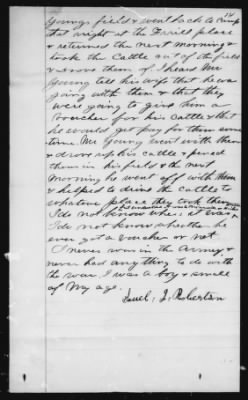 14
Youngs field & went back to Camp
that night at the Terrill place
& returned the next morning &
took the Cattle out of the field
& drove them off I heard Mr
Young tell his wife that he was
going with them & that they
were going to give him a
voucher for his Cattle & that
he would get pay for them some
time. Mr Young went with them
& drove up his cattle & penned
them in his field & the next
morning he went off with them
& helped to drive the cattle to
whatever place they took them
I do not know where it was
I do not know whether he
ever got a voucher or not.
I never was in the Army &
never had any thing to do with
the war. I was a boy & small
of my age.
Saml. J. Robertson